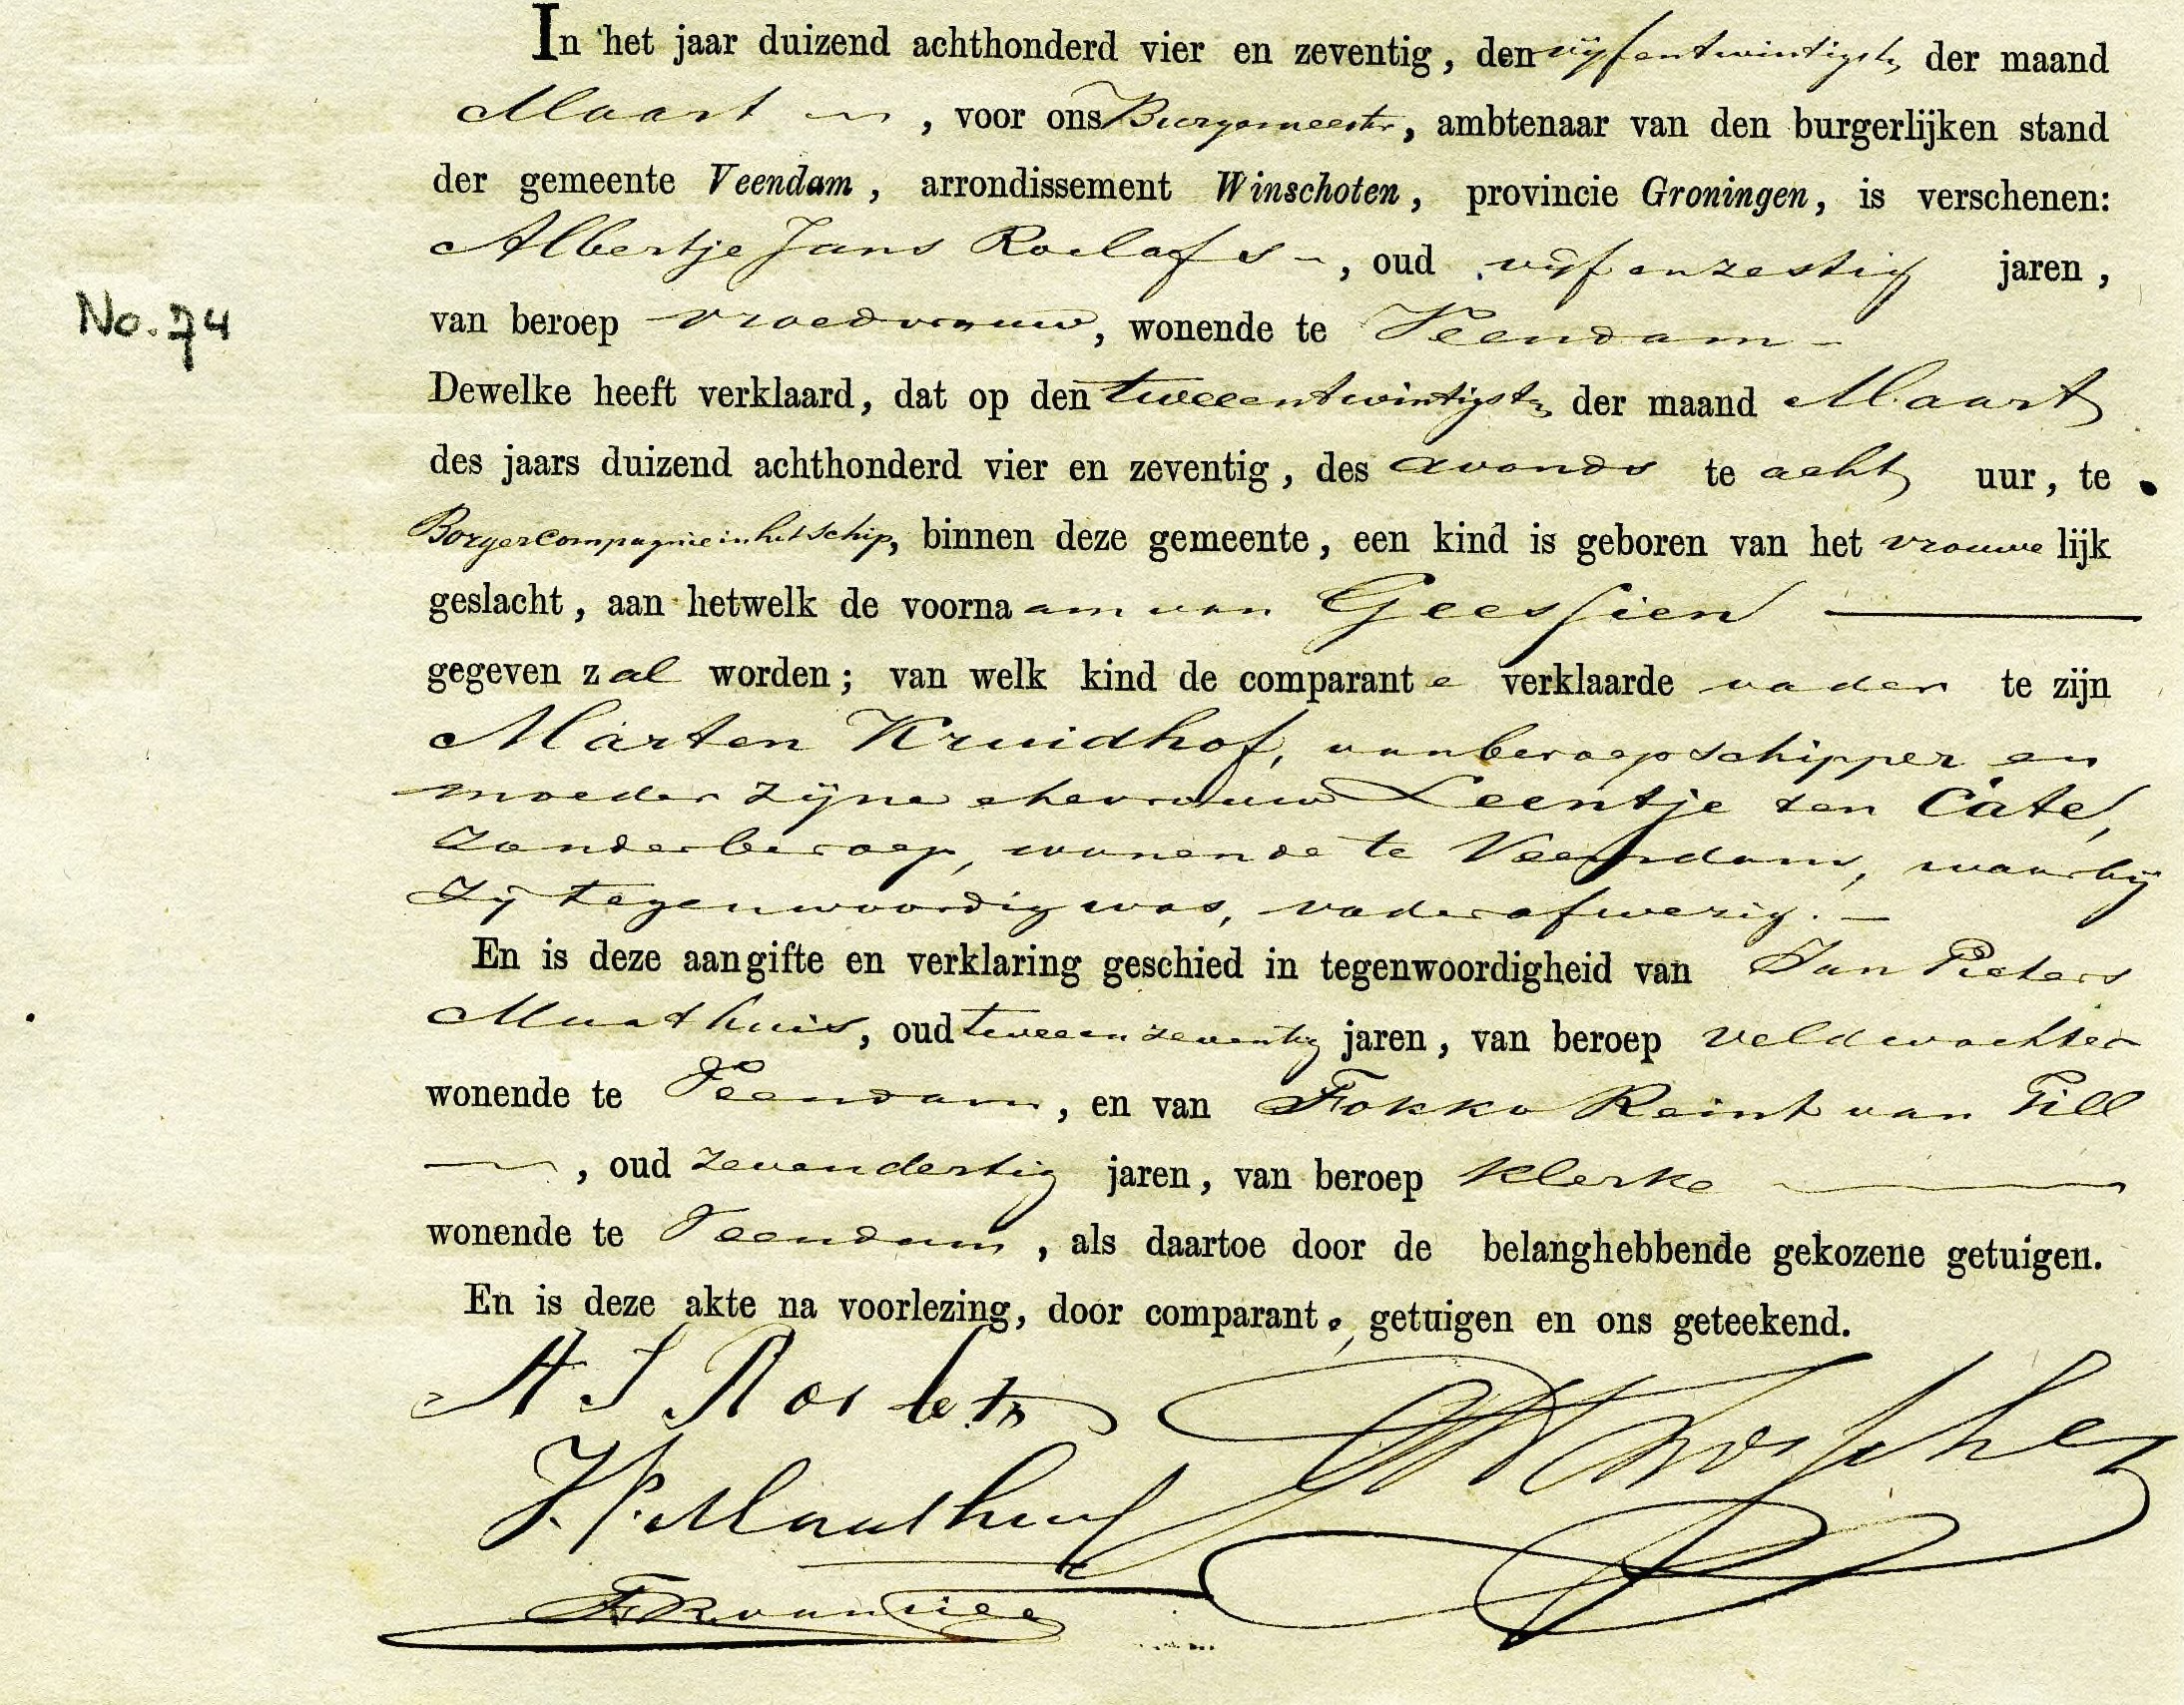 In het jaar duizend achthonderd vier en zeventig, den vijfentwintigsten der maand
Maart, voor ons Burgemeester, ambtenaar van den burgerlijken stand
der gemeente Veendam, arrondissement Winschoten, provincie Groningen, is verschenen:
Albertje Jans Roelofs, oud vijfenzestig jaren,
No. 74
van beroep vroedvrouw, wonende te Veendam
Dewelke heeft verklaard, dat op den tweeentwintigsten der maand Maart
des jaars duizend achthonderd vier en zeventig, des avonds te acht uur, te
Borgercompagnie in het schip, binnen deze gemeente, een kind is geboren van het vrouwelijk
geslacht, aan hetwelk de voornaam van Geessien
gegeven zal worden; van welk kind de comparante verklaarde vader te zijn
Marten Kruidhof, van beroep schipper en
moeder zijne ehevrouw Leentje ten Cate,
zonder beroep, wonende te Veendam, waarbij
zij tegenwoordig was, vader afwezig.
En is deze aangifte en verklaring geschied in tegenwoordigheid van Jan Pieters
Maathuis, oud tweeenzeventig jaren, van beroep veldwachter
wonende te Veendam, en van Fokko Reint van Till
, oud zevendertig jaren, van beroep klerke
wonende te Veendam, als daartoe door de belanghebbende gekozene getuigen.
En is deze akte na voorlezing, door comparante, getuigen en ons geteekend.
A J Roelofs
J. P. Maathuis
F R van Till